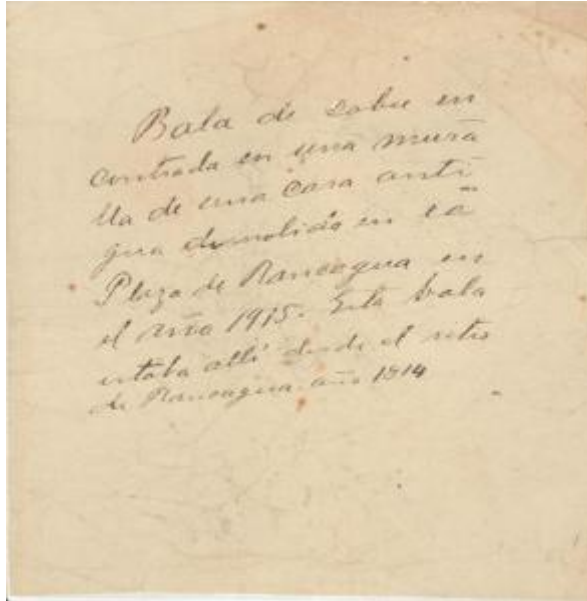 Bala de cobre en
contrada en una mura
lla de una casa anti
gua demolida en la
Plaza de Rancagua en
el año 1915. Esta bala
estaba allí desde el sitio
de Rancagua año 1814